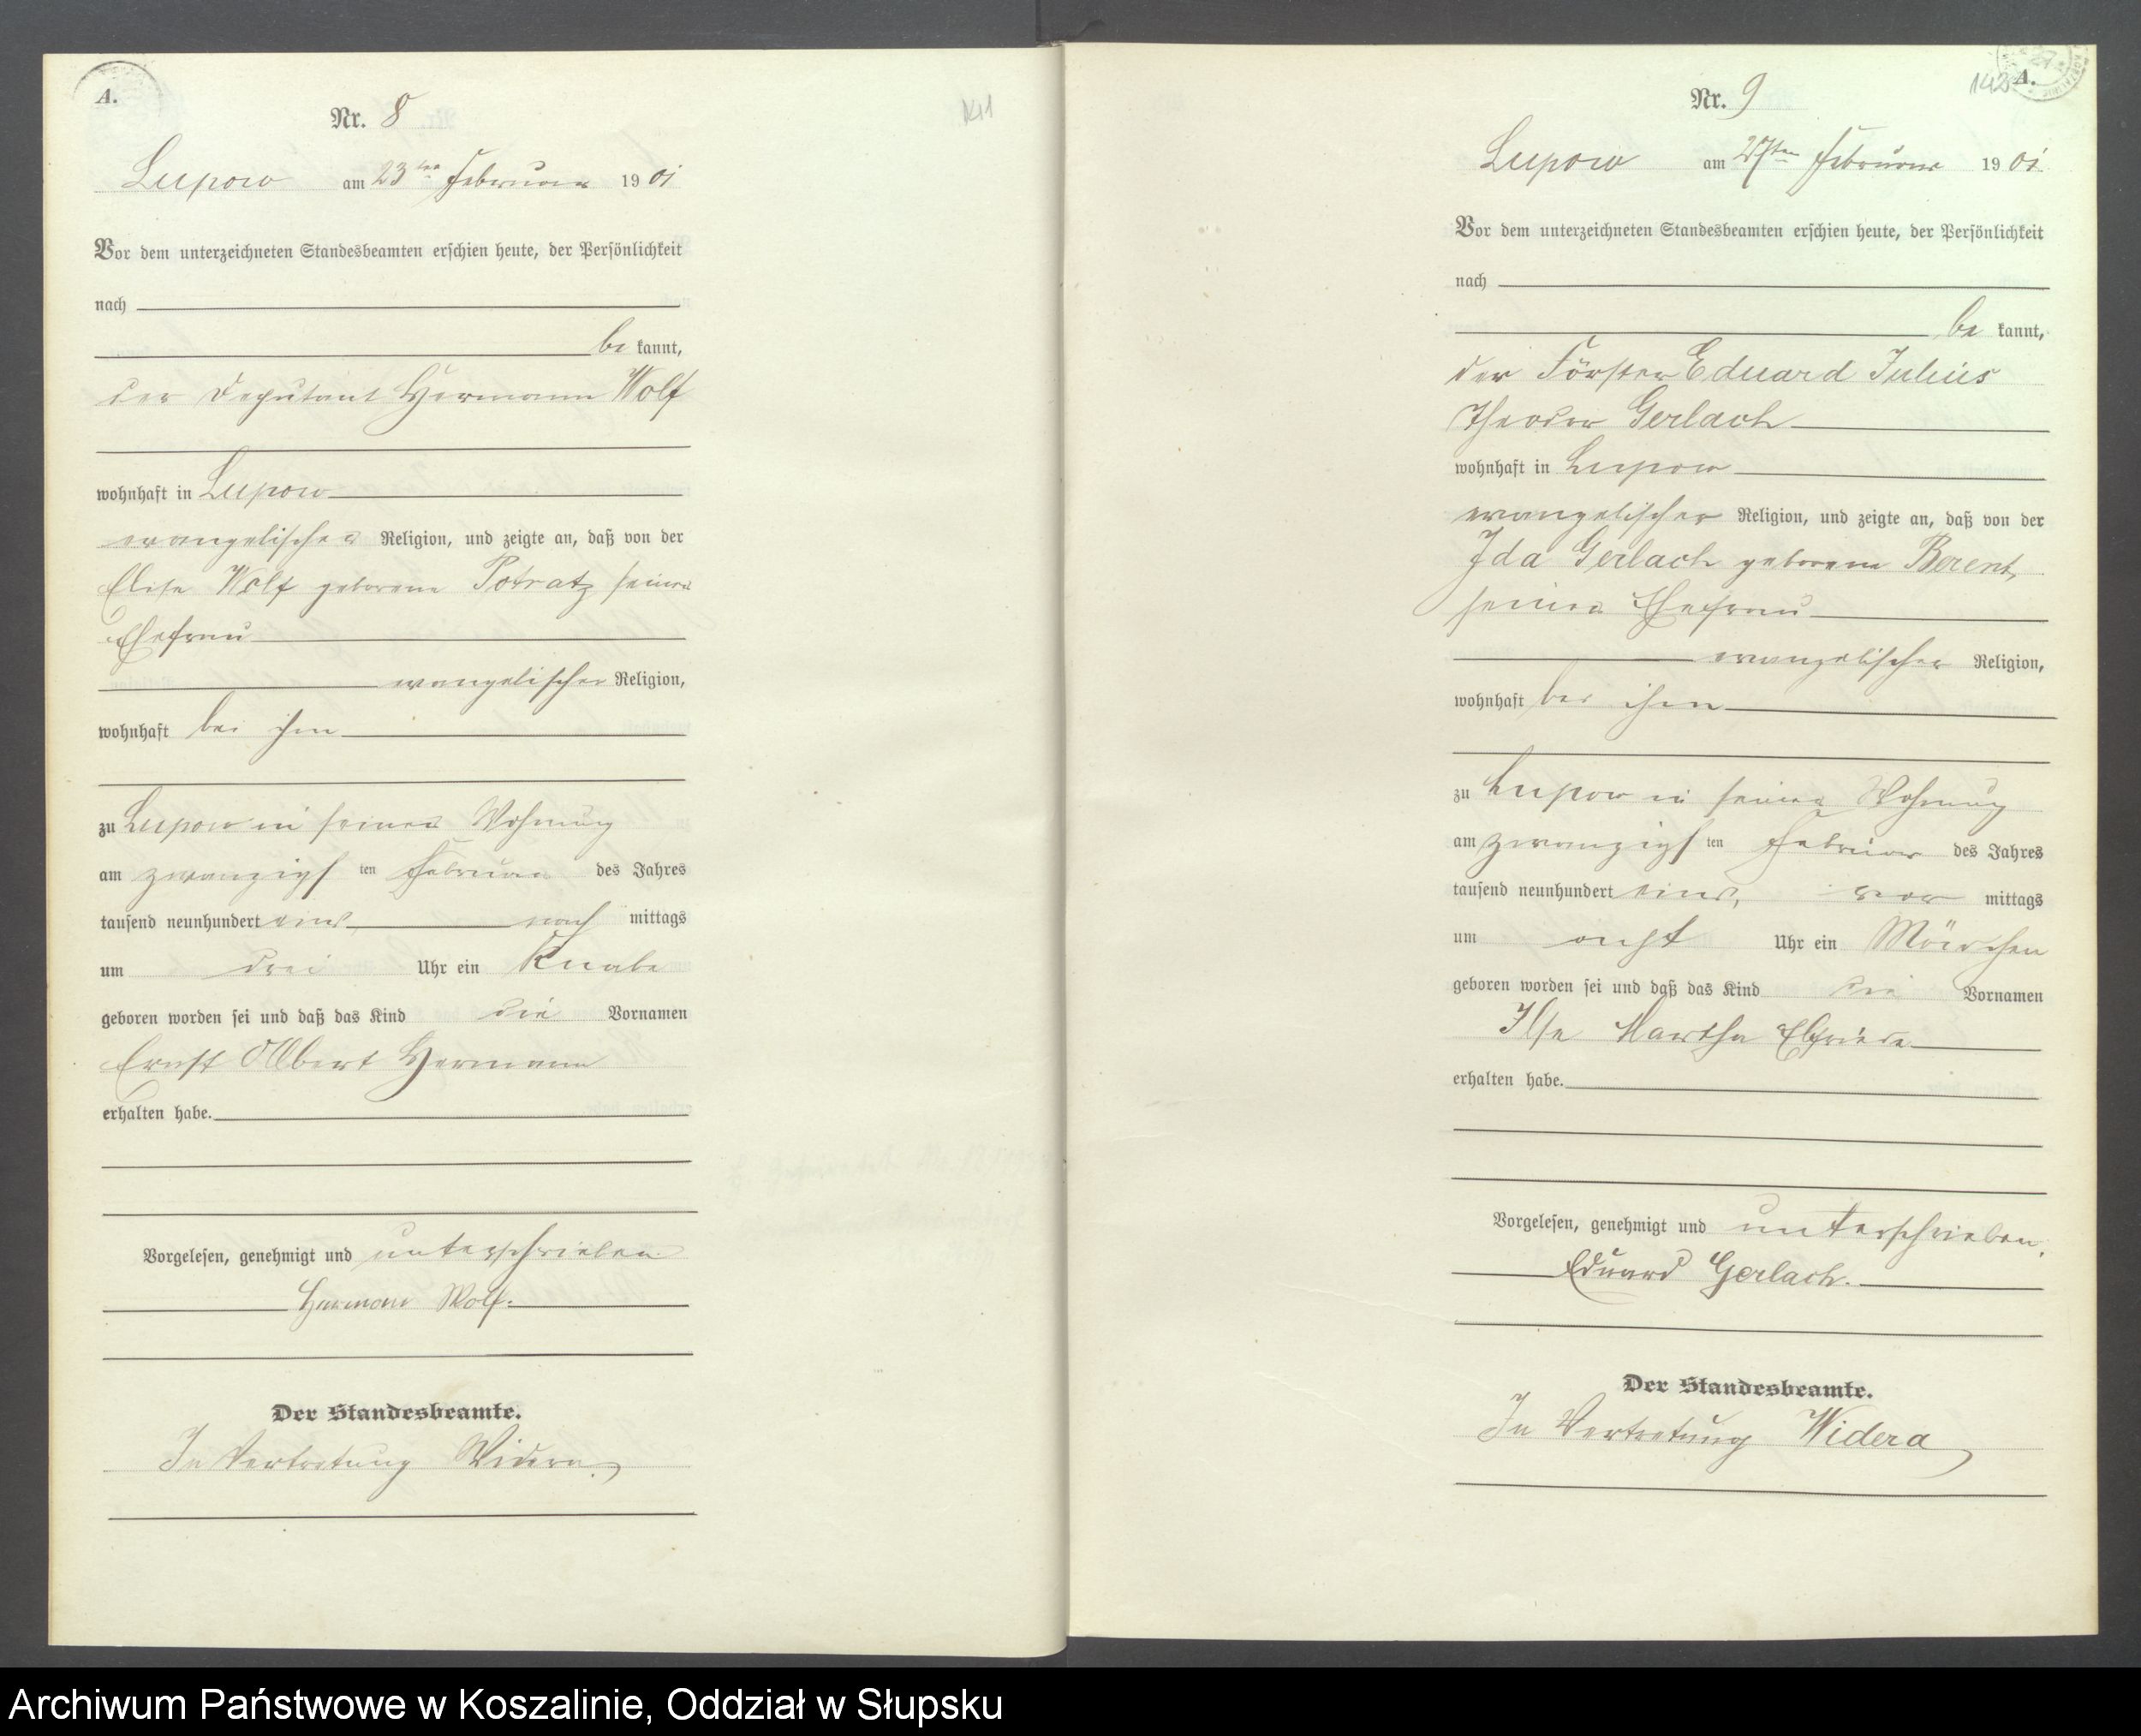 A.
141
Nr. 8
Lupow am 23ten Februar 1901
Vor dem unterzeichneten Standesbeamten erschien heute, der Persönlichkeit
nach
be kannt,
der Deputant Hermann Wolf
wohnhaft in Lupow
evangelischer Religion, und zeigte an, daß von der
Elise Wolf geborene Potratz seiner
Ehefrau
evangelischer Religion,
wohnhaft bei ihm
zu Lupow in seiner Wohnung
am zwanzigsten Februar des Jahres
tausend neunhundert eins nach mittags
um drei Uhr ein Knabe
geboren worden sei und daß das Kind die Vornamen
Ernst Albert Hermann
erhalten habe.
Vorgelesen, genehmigt und unterschrieben
Hermann Wolf.
Der Standesbeamte.
In Vertretung Widera.
142
A.
Nr. 9
Lupow am 27ten Februar 1901
Vor dem unterzeichneten Standesbeamten erschien heute, der Persönlichkeit
nach
be kannt,
der Förster Eduard Julius
Theodor Gerlach
wohnhaft in Lupow
evangelischer Religion, und zeigte an, daß von der
Ida Gerlach geborene Berent,
seiner Ehefrau
evangelischer Religion,
wohnhaft bei ihm
zu Lupow in seiner Wohnung
am zwanzigsten Februar des Jahres
tausend neunhundert eins, vor mittags
um acht Uhr ein Mädchen
geboren worden sei und daß das Kind die Vornamen
Ilse Martha Elfriede
erhalten habe.
Vorgelesen, genehmigt und unterschrieben.
Eduard Gerlach.
Der Standesbeamte.
In Vertretung Widera
Archiwum Państwowe w Koszalinie, Oddział w Słupsku